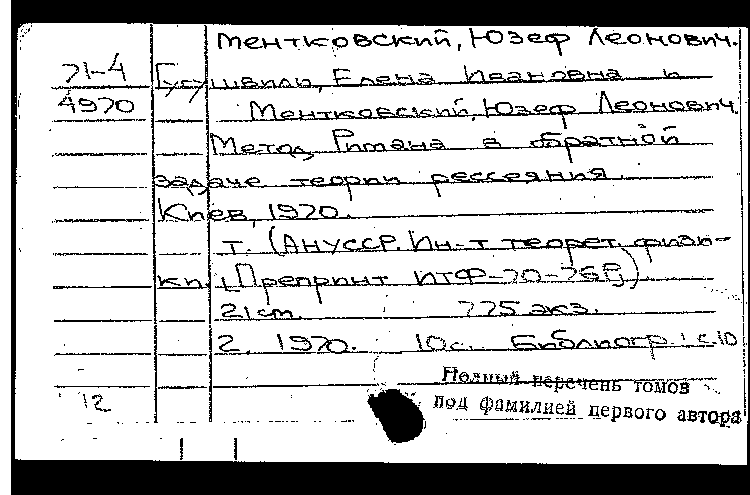 Ментковский, Юзеф Леонович.
71-4 Гусушвили, Елена Ивановна и
4970 Ментковский, Юзеф Леонович.
Метод Римана в обратной
задаче теории рассеяния.
Киев, 1970.
т. (АН УССР. Ин-т теорет. физи-
ки. Препринт ИТФ-70-76Р)
21 см. 775 экз.
2. 1970. 10 с. Библиогр.: с. 10
Полный перечень томов
12 под фамилией первого автора